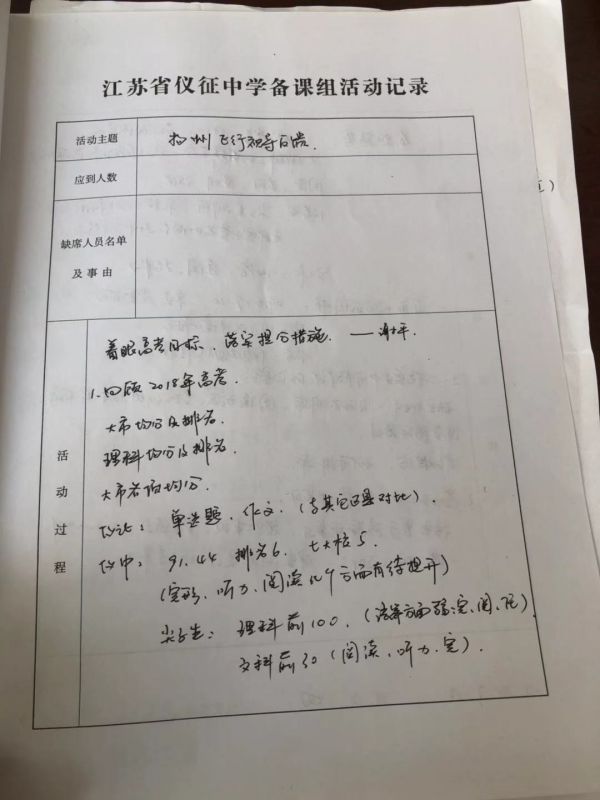 江苏省仪征中学备课组活动记录
活动主题 扬州飞行视导反馈.
应到人数
缺席人员名单
及事由
活动过程
着眼高考目标、落实提分措施. ——谢
1. 回顾2018年高考.
大市均分及排名.
理科均分及排名.
大市各
仪征: 单选题、作文. (与其它县对比).
仪中: 91.44 排名6. 七大校5.
(完形、听力、阅读几个方面有待提升)
尖子生: 理科前100. (
文科前30 (阅读、听力、完).